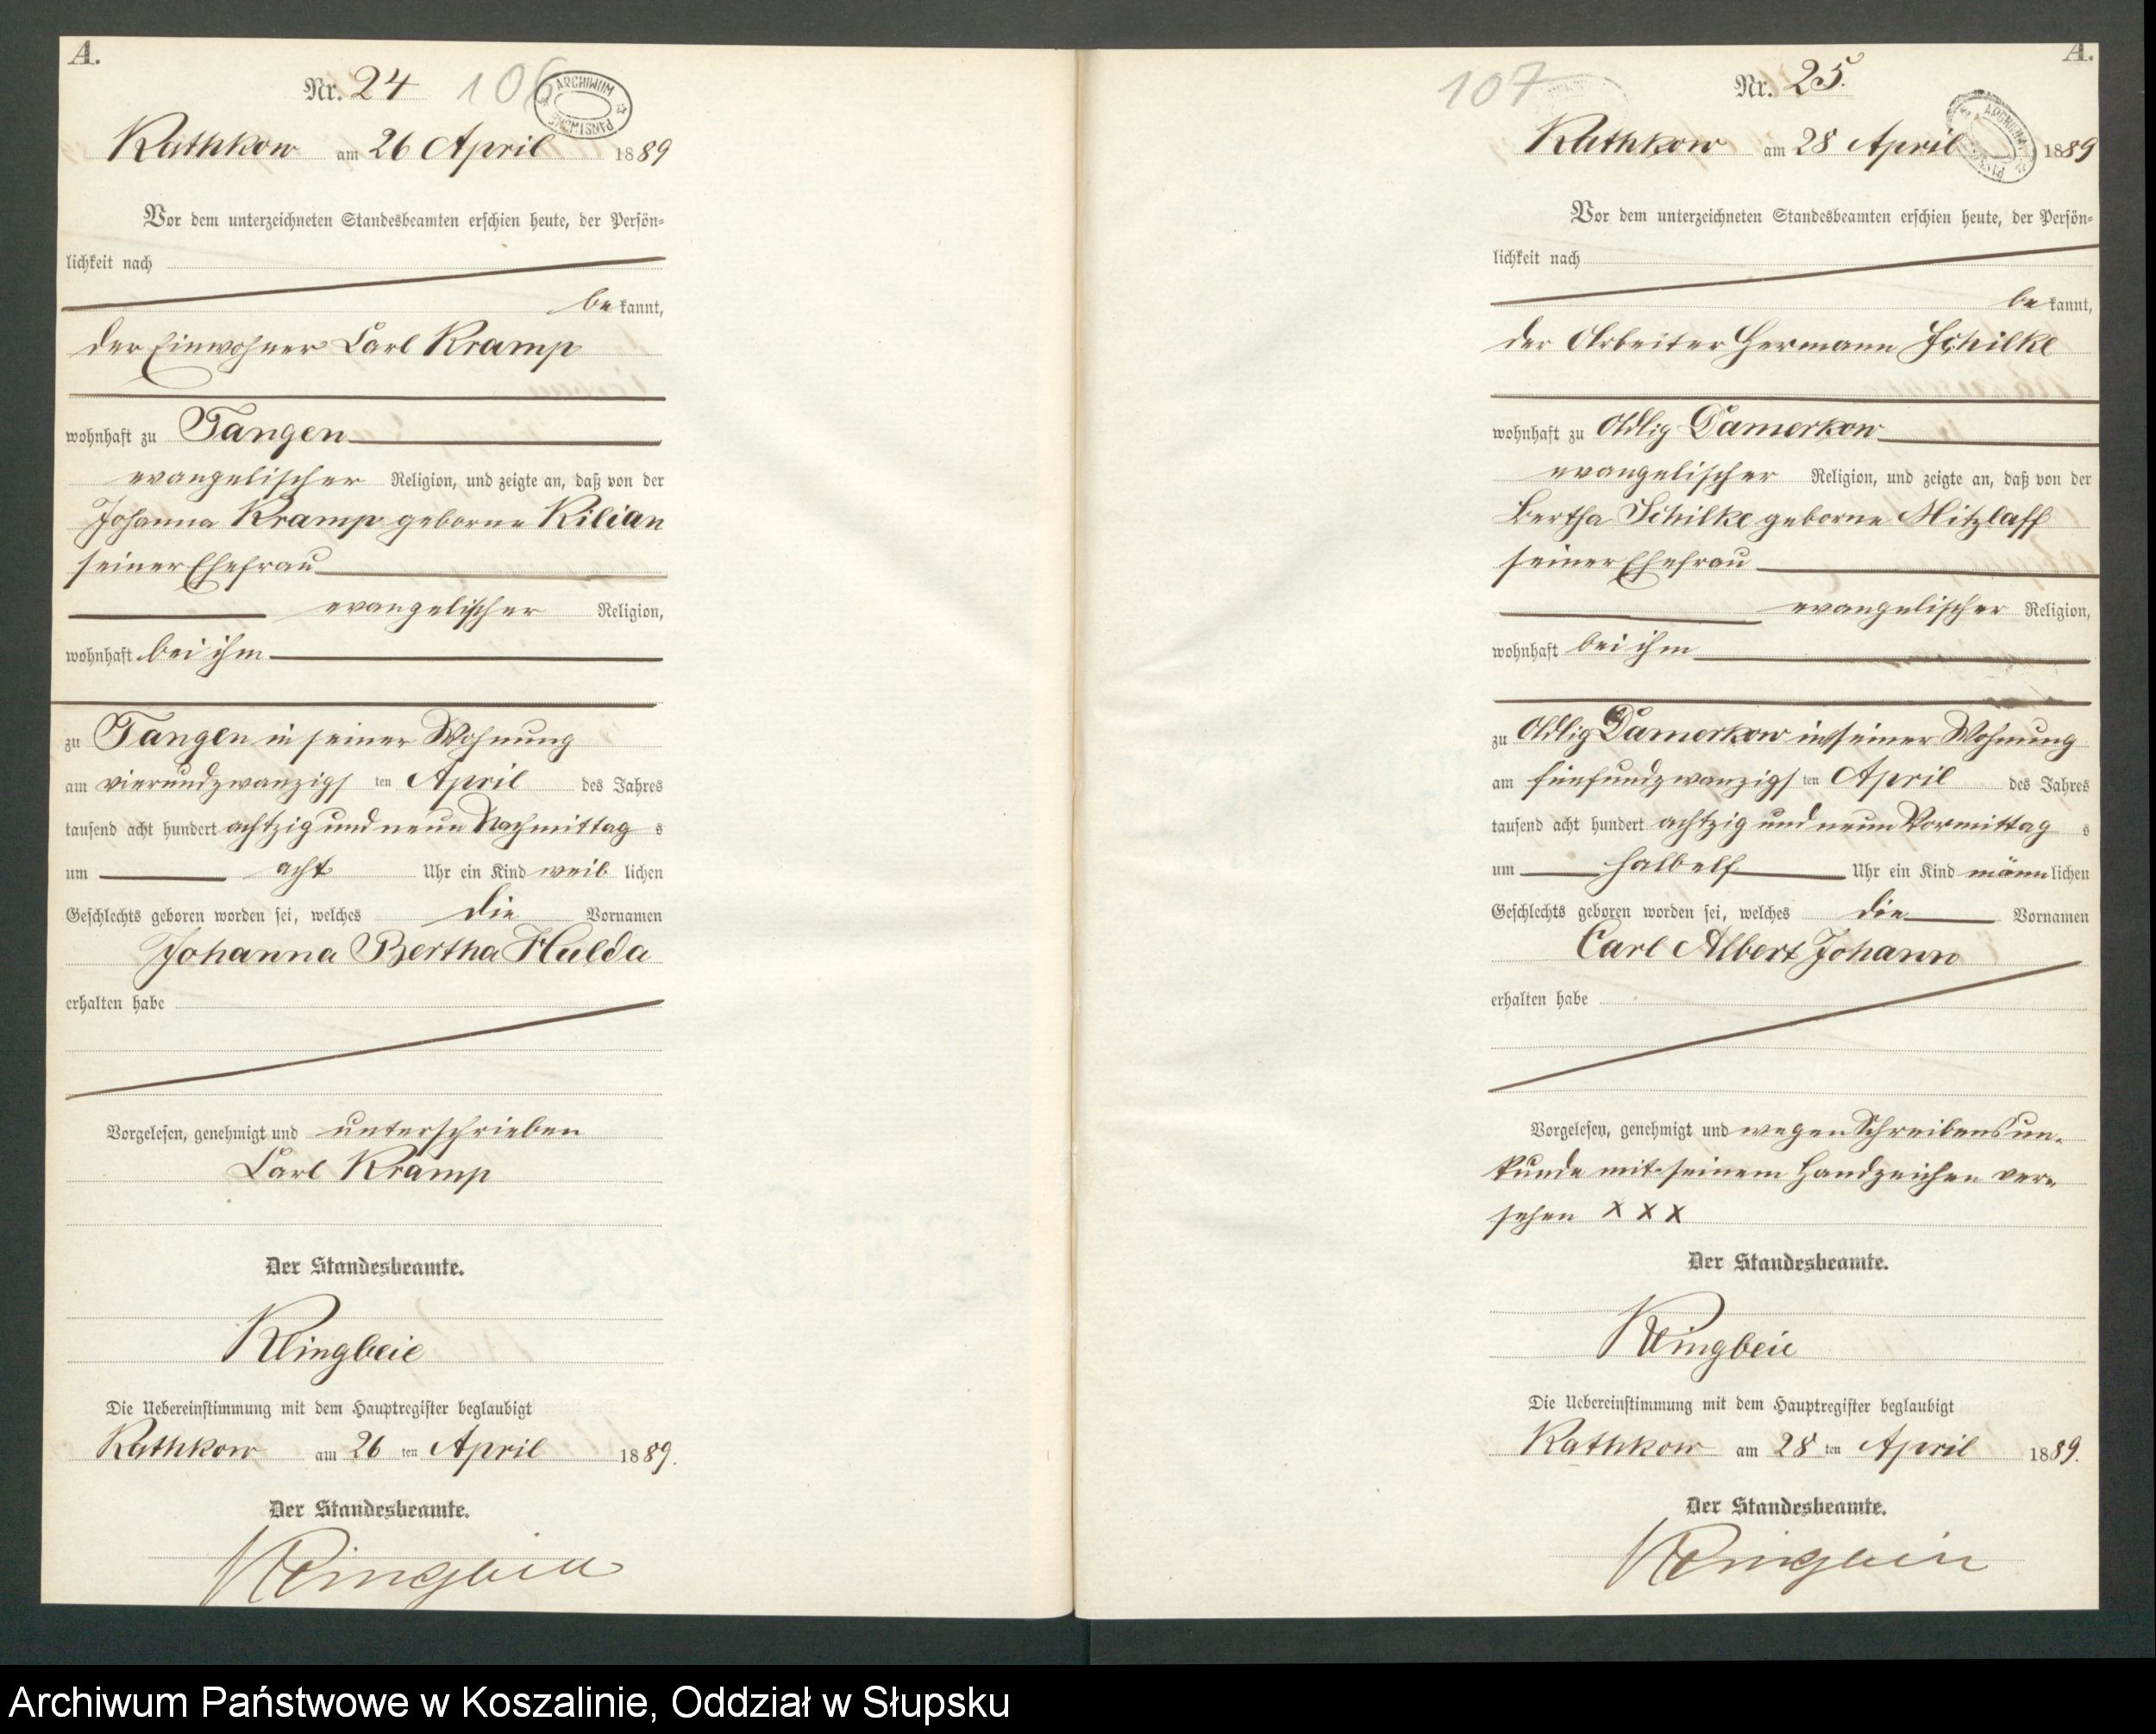 A.
Nr. 24
106
ARCHIWUM PAŃSTWOWE
Rathkow am 26 April 1889
Vor dem unterzeichneten Standesbeamten erschien heute, der Persön-
lichkeit nach
be kannt,
der Einwohner Carl Kramp
wohnhaft zu Tangen
evangelischer Religion, und zeigte an, daß von der
Johanna Kramp geborne Kilian
seiner Ehefrau
evangelischer Religion,
wohnhaft bei ihm
zu Tangen in seiner Wohnung
am vierundzwanzigs ten April des Jahres
tausend acht hundert achtzig und neun Nachmittag s
um acht Uhr ein Kind weib lichen
Geschlechts geboren worden sei, welches die Vornamen
Johanna Bertha Hulda
erhalten habe
Vorgelesen, genehmigt und unterschrieben
Carl Kramp
Der Standesbeamte.
Klingbeil
Die Uebereinstimmung mit dem Hauptregister beglaubigt
Rathkow am 26 ten April 1889.
Der Standesbeamte.
Klingbeil
A.
107
Nr. 25.
Rathkow am 28 April 1889
Vor dem unterzeichneten Standesbeamten erschien heute, der Persön-
lichkeit nach
be kannt,
der Arbeiter Hermann Schilke
wohnhaft zu Adlig Damerkow
evangelischer Religion, und zeigte an, daß von der
Bertha Schilke geborne Mitzlaff
seiner Ehefrau
evangelischer Religion,
wohnhaft bei ihm
zu Adlig Damerkow in seiner Wohnung
am fünfundzwanzigs ten April des Jahres
tausend acht hundert achtzig und neun Vormittag s
um halb elf Uhr ein Kind männ lichen
Geschlechts geboren worden sei, welches die Vornamen
Carl Albert Johann
erhalten habe
Vorgelesen, genehmigt und wegen Schreibensun-
kunde mit seinem Handzeichen ver-
sehen X X X
Der Standesbeamte.
Klingbeil
Die Uebereinstimmung mit dem Hauptregister beglaubigt
Rathkow am 28 ten April 1889.
Der Standesbeamte.
Klingbeil
Archiwum Państwowe w Koszalinie, Oddział w Słupsku